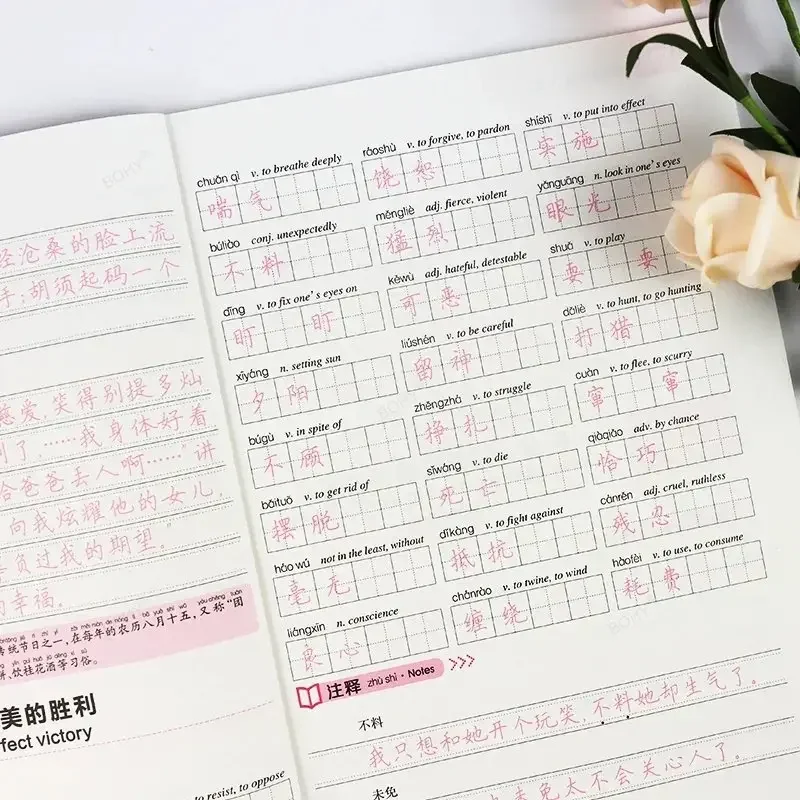 经沧桑的脸上流
手;胡须起码一个
慈爱,笑得别提多灿
到了……我身体好着
给爸爸丢人啊……”讲
向我炫耀他的女儿,
辜负过我的期望。”
的幸福。
传统节日之一,在每年的农历八月十五,又称“团
饼,饮桂花酒等习俗。
美的胜利
fect victory
to resist, to oppose
chuǎn qì v. to breathe deeply
喘气
búliào conj. unexpectedly
不料
dīng v. to fix one's eyes on
盯 盯
xīyáng n. setting sun
夕阳
búgù v. in spite of
不顾
bǎituō v. to get rid of
摆脱
háo wú not in the least, without
毫无
liángxīn n. conscience
良心
ráoshù v. to forgive, to pardon
饶恕
měngliè adj. fierce, violent
猛烈
kěwù adj. hateful, detestable
可恶
liúshén v. to be careful
留神
zhēngzhá v. to struggle
挣扎
sǐwáng v. to die
死亡
dǐkàng v. to fight against
抵抗
chánrào v. to twine, to wind
缠绕
shíshī v. to put into effect
实施
yǎnguāng n. look in one's eyes
眼光
shuǎ v. to play
耍 耍
dǎliè v. to hunt, to go hunting
打猎
cuàn v. to flee, to scurry
窜 窜
qiàqiǎo adv. by chance
恰巧
cánrěn adj. cruel, ruthless
残忍
hàofèi v. to use, to consume
耗费
注释 zhù shì · Notes
不料
我只想和她开个玩笑,不料她却生气了。
未免
未免太不会关心人了。
BOHY